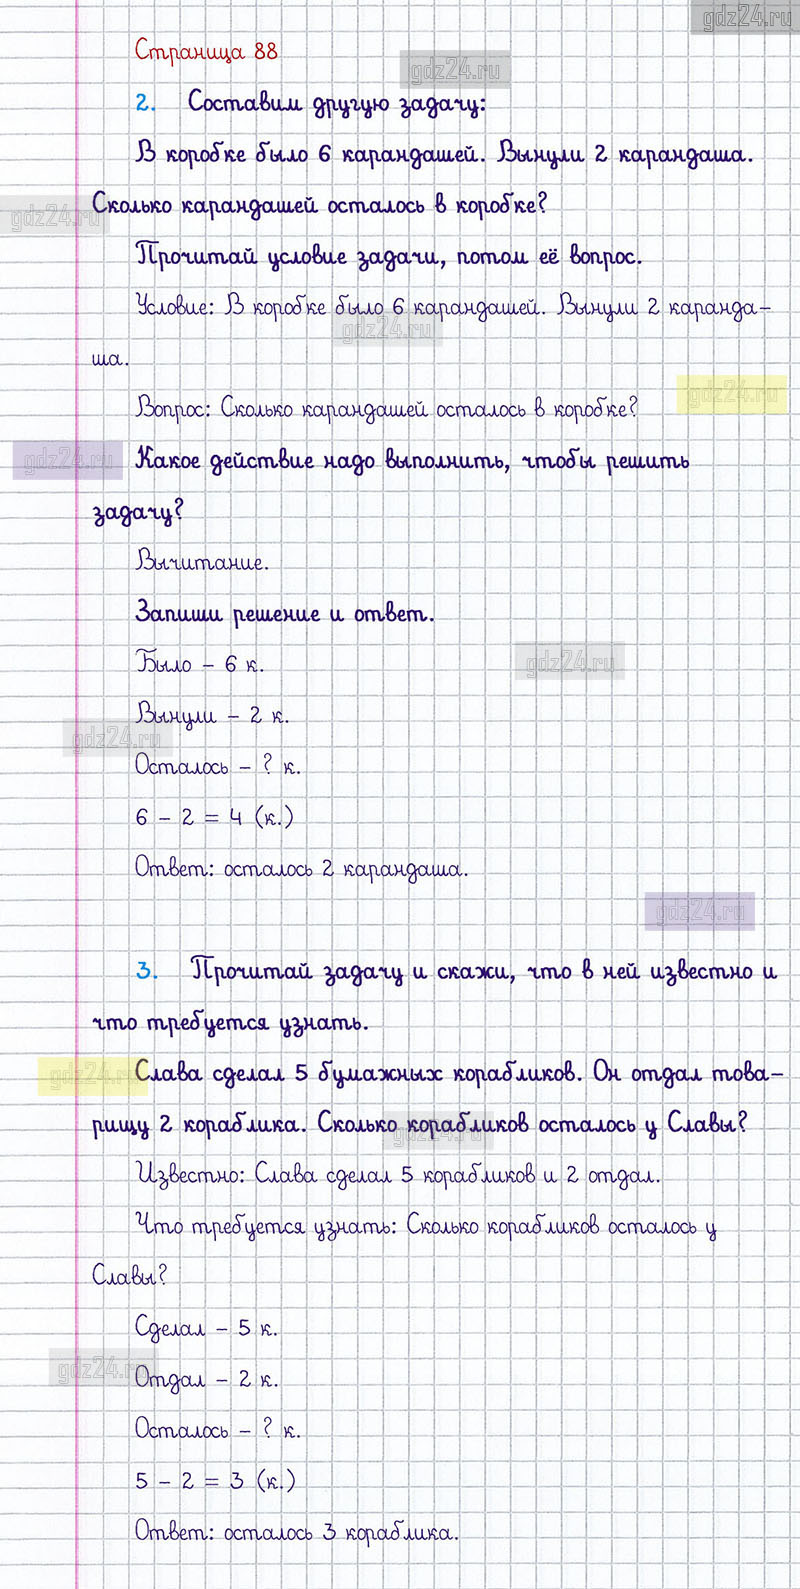 gdz24.ru
Страница 88
gdz24.ru
2. Составим другую задачу:
В коробке было 6 карандашей. Вынули 2 карандаша.
Сколько карандашей осталось в коробке?
gdz24.ru
Прочитай условие задачи, потом её вопрос.
Условие: В коробке было 6 карандашей. Вынули 2 каранда-
gdz24.ru
ша.
Вопрос: Сколько карандашей осталось в коробке?
gdz24.ru
gdz24.ru
Какое действие надо выполнить, чтобы решить
задачу?
Вычитание.
Запиши решение и ответ.
Было – 6 к.
gdz24.ru
Вынули – 2 к.
gdz24.ru
Осталось – ? к.
6 – 2 = 4 (к.)
Ответ: осталось 2 карандаша.
gdz24.ru
3. Прочитай задачу и скажи, что в ней известно и
что требуется узнать.
gdz24.ru
Слава сделал 5 бумажных корабликов. Он отдал това-
рищу 2 кораблика. Сколько корабликов осталось у Славы?
gdz24.ru
Известно: Слава сделал 5 корабликов и 2 отдал.
Что требуется узнать: Сколько корабликов осталось у
Славы?
Сделал – 5 к.
gdz24.ru
Отдал – 2 к.
Осталось – ? к.
5 – 2 = 3 (к.)
Ответ: осталось 3 кораблика.